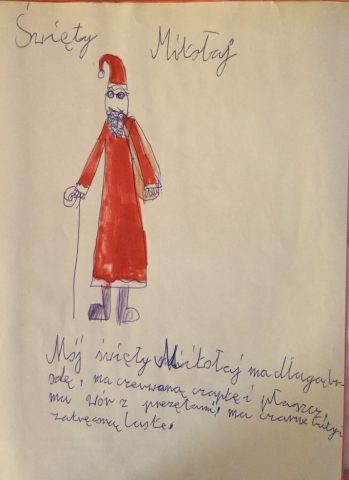 Święty Mikołaj
Mój święty Mikołaj ma długą bro
dę, ma czerwoną czapkę i płaszcz,
ma wór z prezętami, ma czarne buty i
zakręconą laskę.